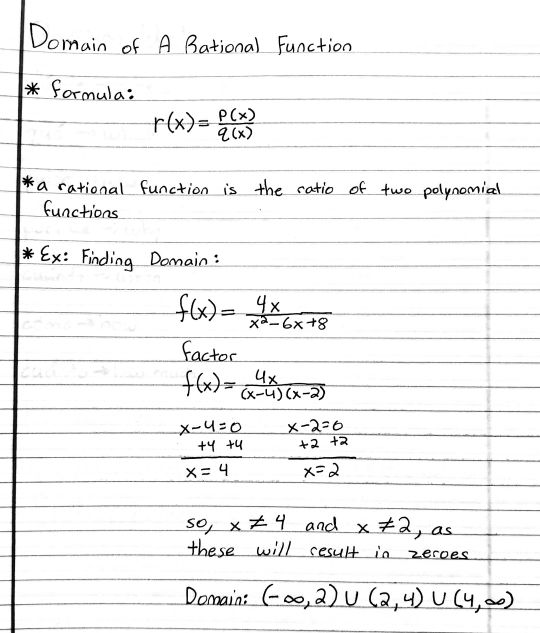 Domain of A Rational Function
* formula:
r(x) = p(x)/q(x)
*a rational function is the ratio of two polynomial
functions
* Ex: Finding Domain:
f(x) = 4x/x²-6x+8
factor
f(x) = 4x/(x-4)(x-2)
x-4=0 x-2=0
+4 +4 +2 +2
x=4 x=2
so, x ≠ 4 and x ≠ 2, as
these will result in zeroes
Domain: (-∞, 2) U (2, 4) U (4, ∞)